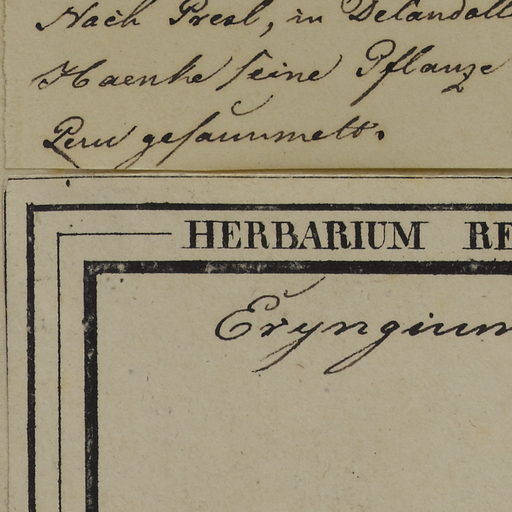 Nach Presl, in Decandoll
Haenke seine Pflanze
Peru gesammelt.
HERBARIUM RE
Eryngium